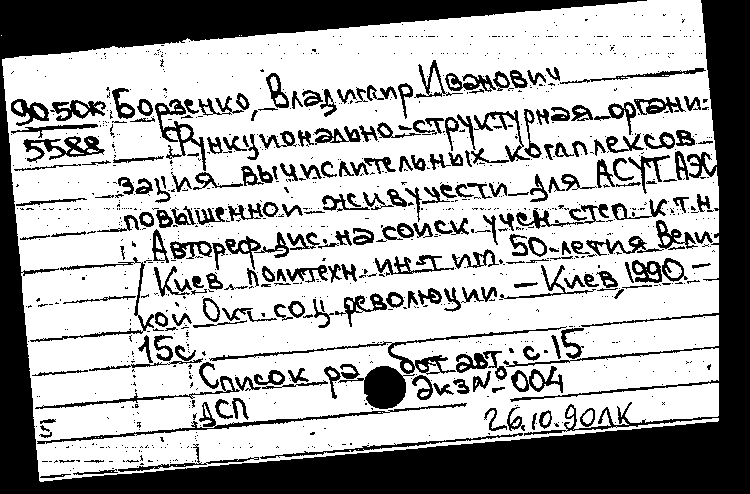 90-50к Борзенко, Владимир Иванович
5588 Функционально-структурная органи-
зация вычислительных комплексов
повышенной живучести для АСУТ АЭС
: Автореф. дис. на соиск. учен. степ. к.т.н.
/ Киев. политехн. ин-т им. 50-летия Вели-
кой Окт. соц. революции. – Киев, 1990. –
15с.
Список работ авт.: с. 15
ДСП Экз № 004
5 26.10.90 ЛК.